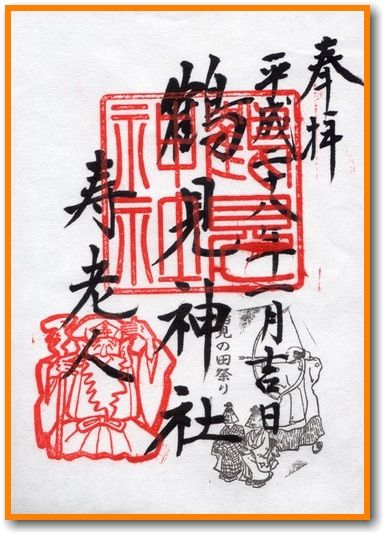 奉拝
平成二十八年十一月吉日
鶴見神社
寿老人
鶴見神社
鶴見の田祭り